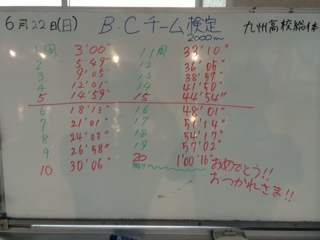 6月22日(日) B.Cチーム検定 九州高校総体
2000m
1周 3'00" 11周 33'10"
2 5'49" 12 36'05"
3 9'05" 13 38'57"
4 12'01" 14 41'50"
5 14'59" 15 44'54"
6 18'13" 16 48'01"
7 21'01" 17 51'14"
8 24'03" 18 54'17"
9 26'58" 19 57'02"
10 30'06" 20 1'00'16"
おめでとう!!
おつかれさま!!